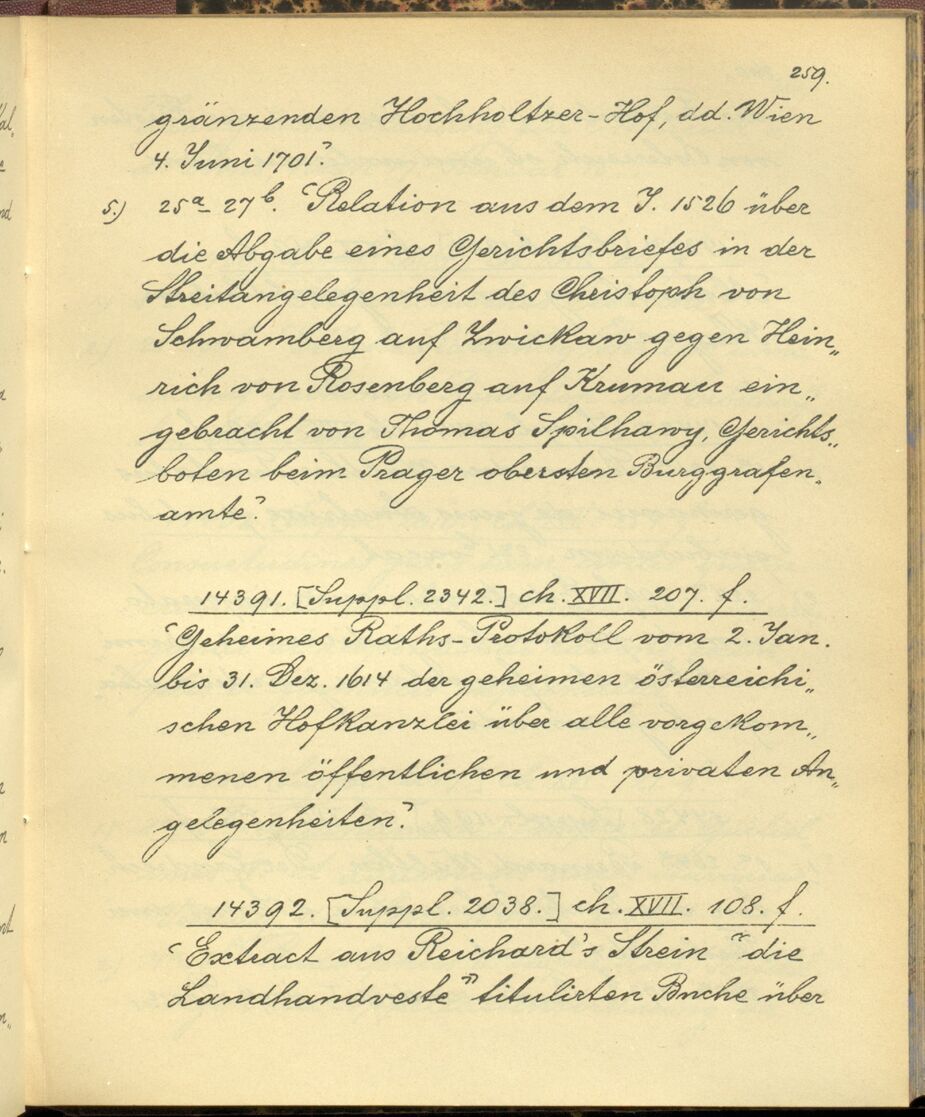 259.
gränzenden Hochholtzer-Hof, dd. Wien
4. Juni 1701’.
5.) 25a- 27b. ‘Relation aus dem J. 1526 über
die Abgabe eines Gerichtsbriefes in der
Streitangelegenheit des Christoph von
Schwamberg auf Zwickaw gegen Hein„
rich von Rosenberg auf Krumau ein„
gebracht von Thomas Spilhawy, Gerichts„
boten beim Prager obersten Burggrafen„
amte’.
14391. [Suppl. 2342.] ch. XVII. 207. f.
‘Geheimes Raths-Protokoll vom 2. Jan.
bis 31. Dez. 1614 der geheimen österreichi„
schen Hofkanzlei über alle vorgekom„
menen öffentlichen und privaten An„
gelegenheiten’.
14392. [Suppl. 2038.] ch. XVII. 108. f.
‘Extract aus Reichard's Strein “die
Landhandveste” titulirten Buche über